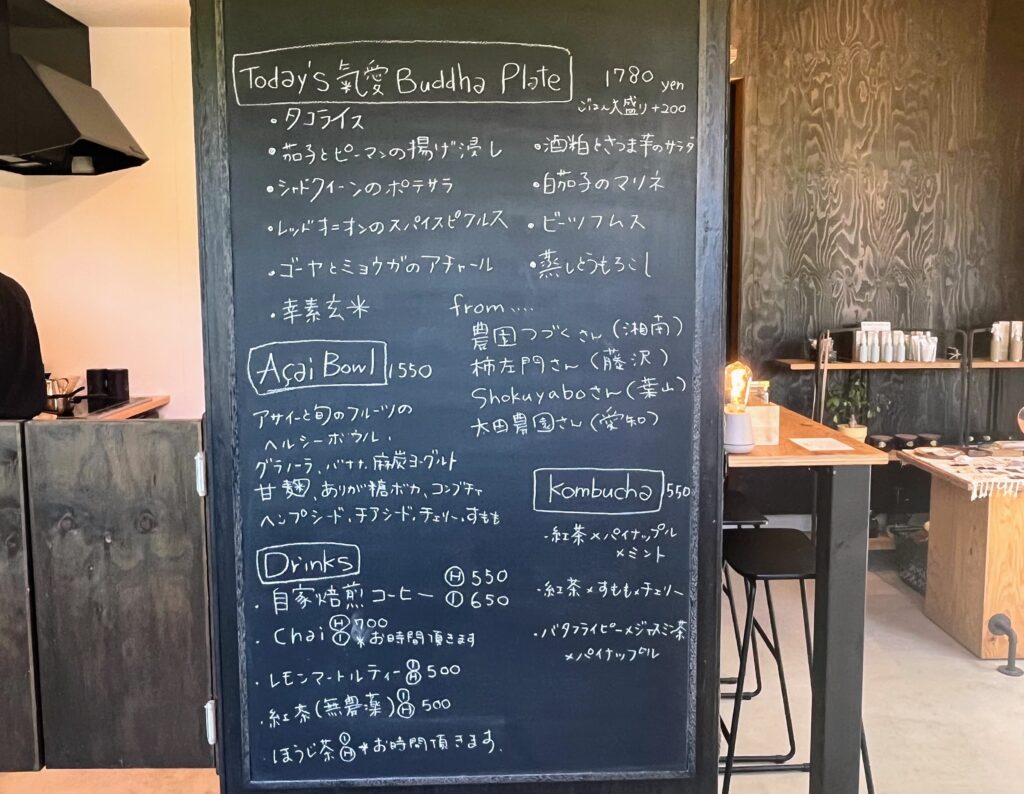 Today's 氣愛 Buddha Plate 1780 yen
ごはん大盛り+200
・タコライス
・茄子とピーマンの揚げ浸し
・シャドクイーンのポテサラ
・レッドオニオンのスパイスピクルス
・ゴーヤとミョウガのアチャール
・幸素玄米
・酒粕とさつま芋のサラダ
・白茄子のマリネ
・ビーツフムス
・蒸しとうもろこし
from....
農園つづくさん(湘南)
柿左門さん(藤沢)
Shokuyaboさん(葉山)
太田農園さん(愛知)
Açai Bowl 1550
アサイーと旬のフルーツの
ヘルシーボウル.
グラノーラ、バナナ、麻炭ヨーグルト
甘麹、ありが糖ボカ、コンブチャ
ヘンプシード、チアシード、チェリー、すもも
Kombucha 550
・紅茶×パイナップル
×ミント
・紅茶×すもも×チェリー
・バタフライピー×ジャスミン茶
×パイナップル
Drinks
・自家焙煎コーヒー Ⓗ 550
Ⓘ 650
・Chai Ⓗ 700
Ⓘ *お時間頂きます
・レモンマートルティーⒾⒽ 500
・紅茶(無農薬)ⒾⒽ 500
・ほうじ茶ⒾⒽ *お時間頂きます.